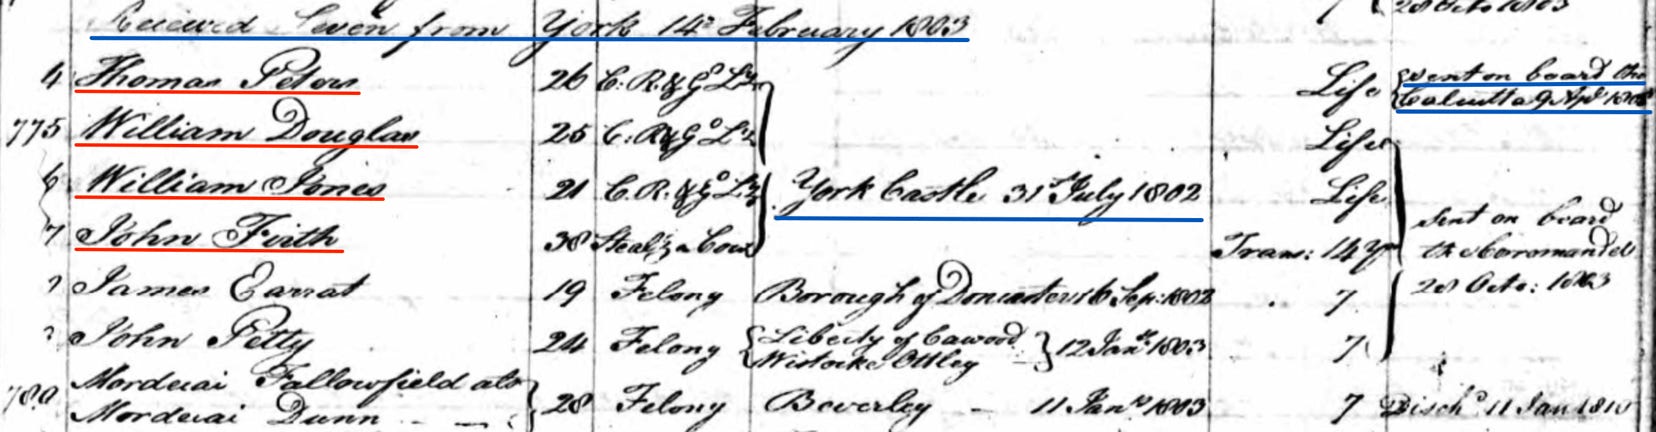 Received Seven from York 14th February 1803
4 Thomas Peters 26 C. R. & Go Lz Life {Sent on board the
Calcutta 9 Apl 1803
775 William Douglas 25 C. R & Go Lz Life
6 William Jones 21 C. R. & Go Lz York Castle 31st July 1802 Life
7 John Firth 38 Stealg a Cow Trans: 14 Yrs
Sent on board
the Coromandel
28 Octo: 1803
James Earrat 19 Felony Borough of Doncaster 16 Sep: 1802 7
John Petty 24 Felony {Liberty of Cawood
Wistow & Ottley} 12 Jany 1803 7
780 Mordecai Fallowfield als
Mordecai Dunn 28 Felony Beverley - 11 Jany 1803 7 Dischd 11 Jan 1810